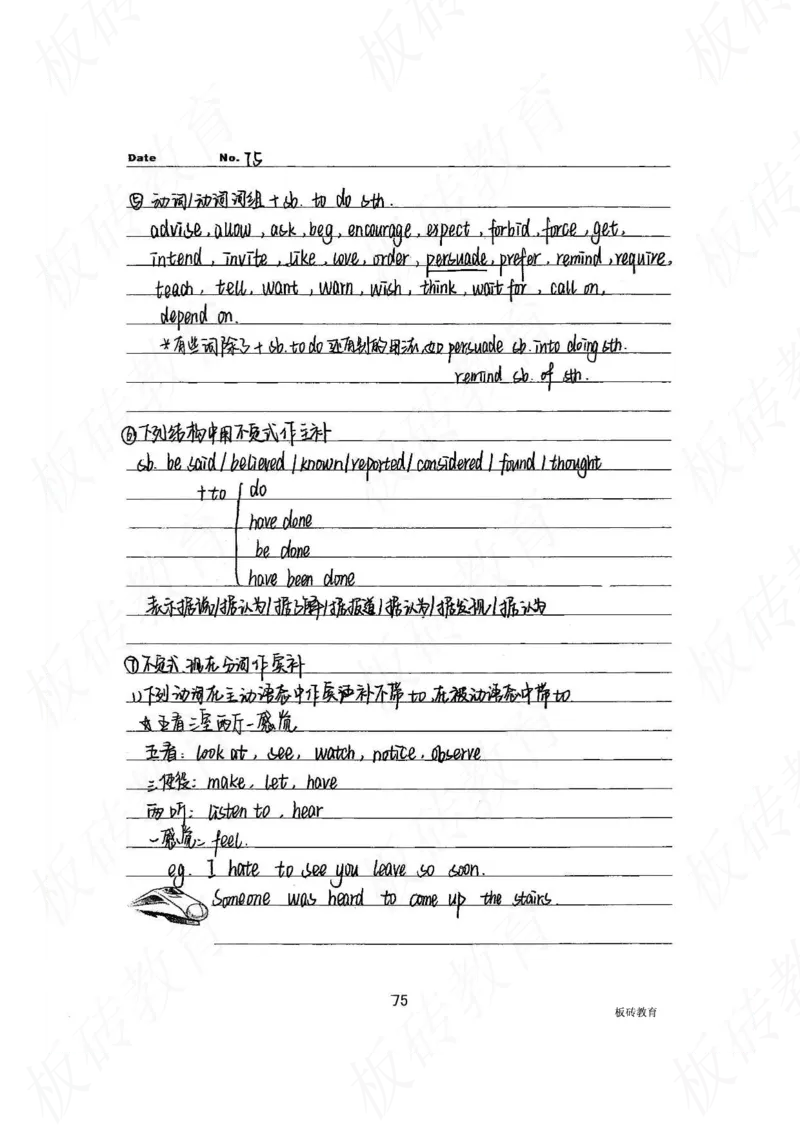 Date No. 75
⑤ 动词/动词词组 + sb. to do sth.
advise, allow, ask, beg, encourage, expect, forbid, force, get,
intend, invite, like, love, order, persuade, prefer, remind, require,
teach, tell, want, warn, wish, think, wait for, call on,
depend on.
*有些词除了 + sb. to do 还有别的用法, 如 persuade sb. into doing sth.
remind sb. of sth.
⑥下列结构中用不定式作主补
sb. be said / believed / known / reported / considered / found / thought
+ to do
have done
be done
have been done
表示据说/据认为/据了解/据报道/据认为/据发现/据认为
⑦不定式、现在分词作宾补
1)下列动词在主动语态中作宾语补不带 to, 在被动语态中带 to.
☆ 五看三使两听一感觉
五看: look at, see, watch, notice, observe
三使役: make, let, have
两听: listen to, hear
一感觉: feel.
eg. I hate to see you leave so soon.
Someone was heard to come up the stairs.
75
板砖教育